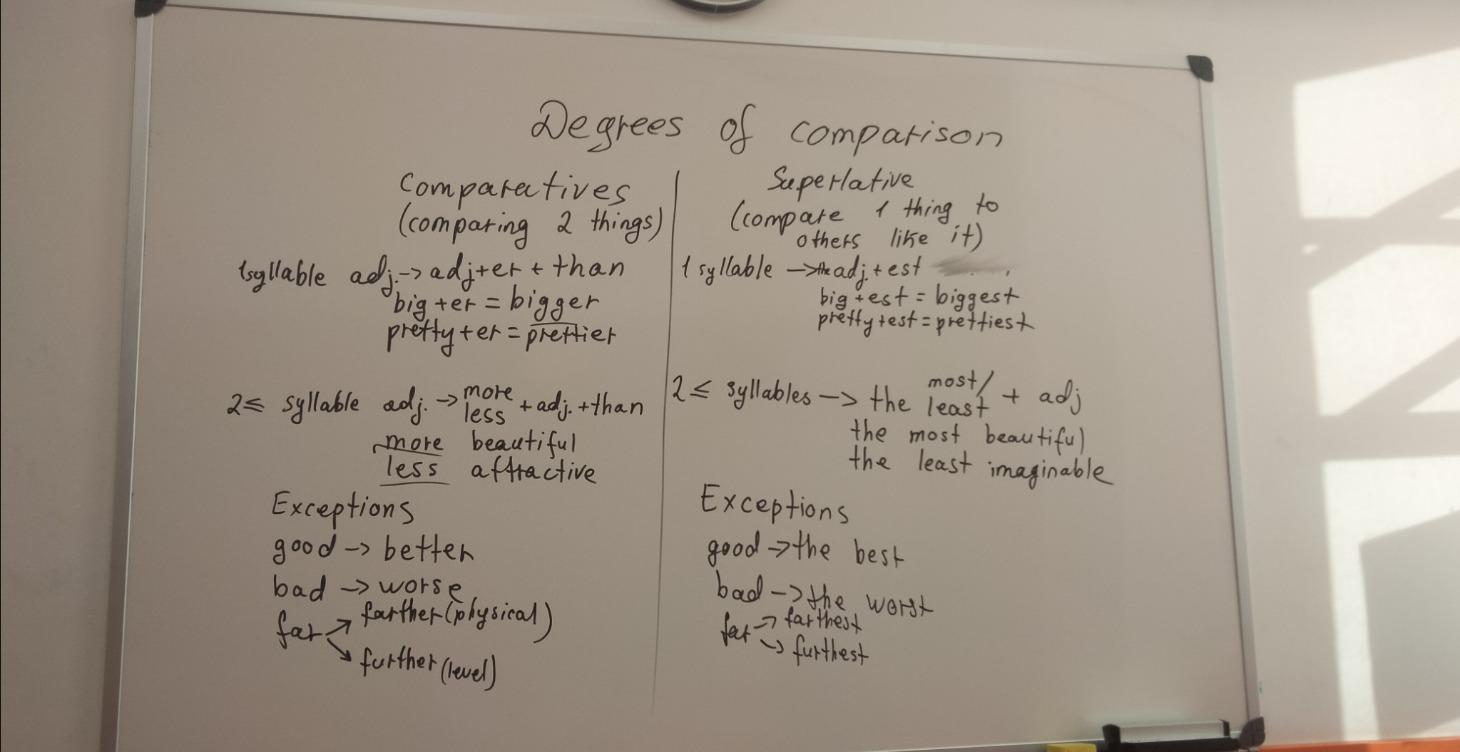 Degrees of comparison
Comparatives
(comparing 2 things)
1syllable adj.->adj+er + than
big+er = bigger
pretty+er = prettier
2≤ syllable adj. -> more
less +adj.+than
more beautiful
less attractive
Exceptions
good -> better
bad -> worse
far -> farther (physical)
-> further (level)
Superlative
(compare 1 thing to
others like it)
1 syllable ->the adj.+est
big+est = biggest
pretty+est=prettiest
2≤ syllables -> the most/
least + adj
the most beautiful
the least imaginable
Exceptions
good ->the best
bad ->the worst
far -> farthest
-> furthest